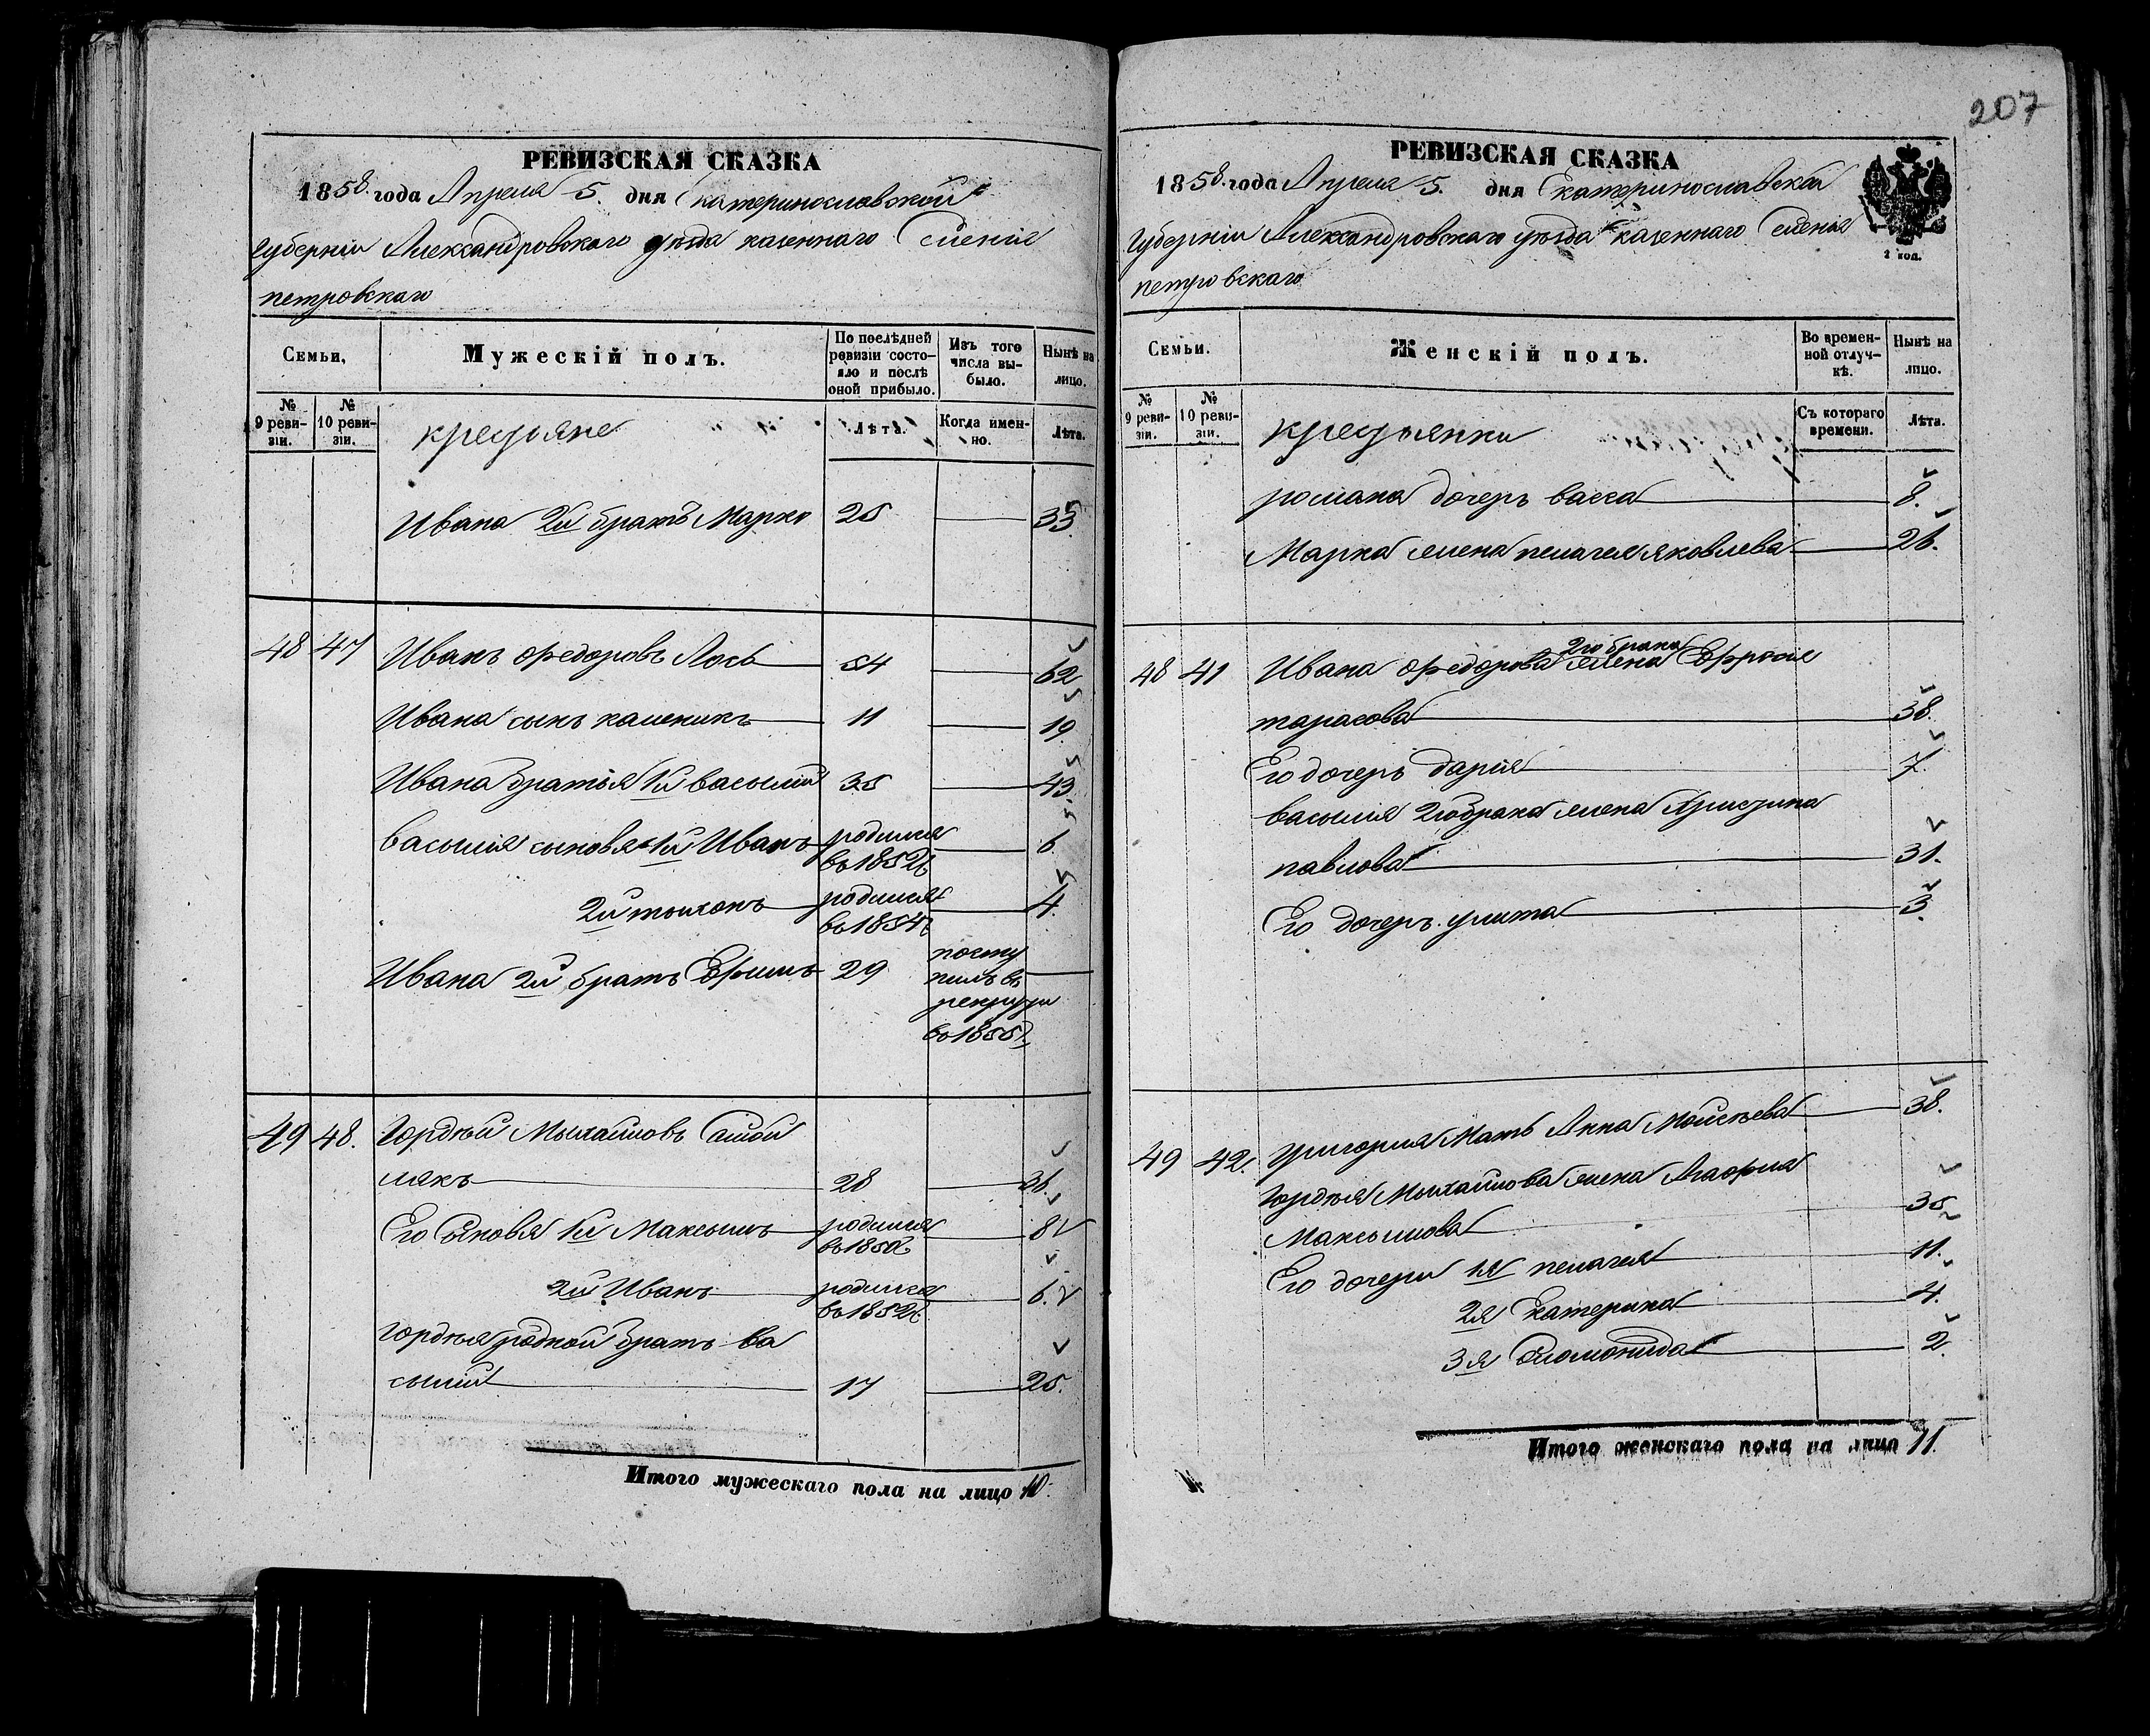 207
РЕВИЗСКАЯ СКАЗКА
1858. года Апреля 5. дня Екатеринославской
губерніи Александровскаго уезда казеннаго Селенія
петровскаго
Семьи,
Мужескій полъ.
По послѣдней ревизіи состояло и послѣ оной прибыло.
Изъ того числа выбыло.
Нынѣ на лицо.
№ 9 ревизіи.
№ 10 ревизіи.
крестяне
Лѣта.
Когда именно.
Лѣта.
Ивана 2й братъ Марко 25 33.
48 47 Иванъ Федоровъ Лось 54 62
Ивана сынъ каленикъ 11 19
Ивана братья 1й василій 35 43
василія сыновя 1й Иванъ родился в 1852г. 6
2й тихонъ родился в 1854г. 4.
Ивана 2й братъ Ефимъ 29 посту
пилъ в
рекруты
в 1855г.
49 48. Гордѣй Михайловъ
лякъ 28 36.
Его Сыновя 1й Максимъ родился в 1850г. 8
2й Иванъ родился в 1852г. 6.
Гордѣя родной братъ ва
силій 17 25.
Итого мужескаго пола на лицо 10.
РЕВИЗСКАЯ СКАЗКА
1858. года Апреля 5. дня Екатеринославской
губерніи Александровскаго уѣзда казеннаго Селенія
петровскаго
Семьи.
Женскій полъ.
Во временной отлучкѣ.
Нынѣ на лицо.
№ 9 ревизіи.
№ 10 ревизіи.
крестянки
Съ котораго времени.
Лѣта.
романа дочерь васса 8.
Марка жена пелагея яковлева 26.
2го брака
48 41 Ивана Федорова жена Ефросия
тарасова 38.
Его дочерь дария 7.
василия 2го брака жена Христина
павлова 31.
Его дочерь улита 3.
49 42. Григория Мать Анна Мойсѣева 38.
Гордѣя Михайлова жена Агафия
Максимова 35
Его дочери 1я пелагея 11.
2я Екатерина 4.
3я Соломонида 2.
Итого женскаго пола на лицо 11.